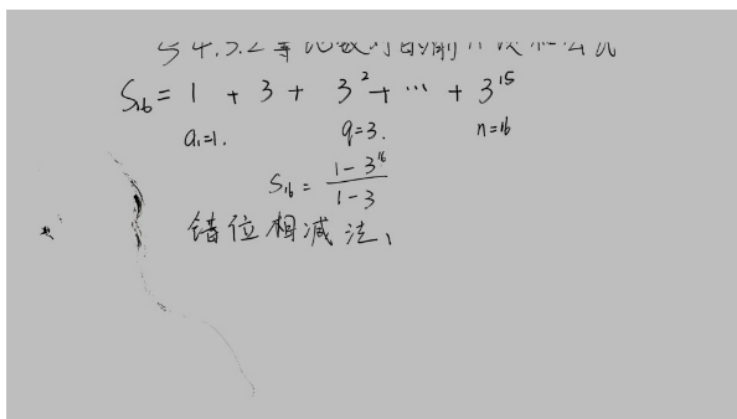 S₁₆ = 1 + 3 + 3² + ⋯ + 3¹⁵
a₁=1. q=3. n=16
S₁₆ = (1-3¹⁶)/(1-3)
错位相减法、